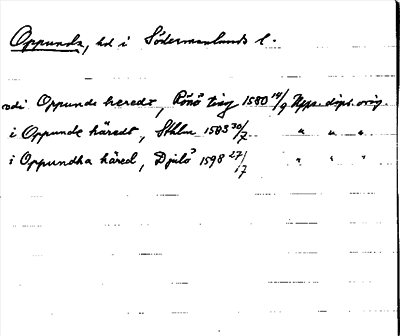 Oppunda, hd i Södermanlands l.
vdi Oppunde heredt, Rönö ting 1580 14/9 Upps. dipl. orig.
i Oppunde häredt, Sthlm 1583 30/7 " " "
i Oppundha häred, Djulö 1598 27/17 " " "